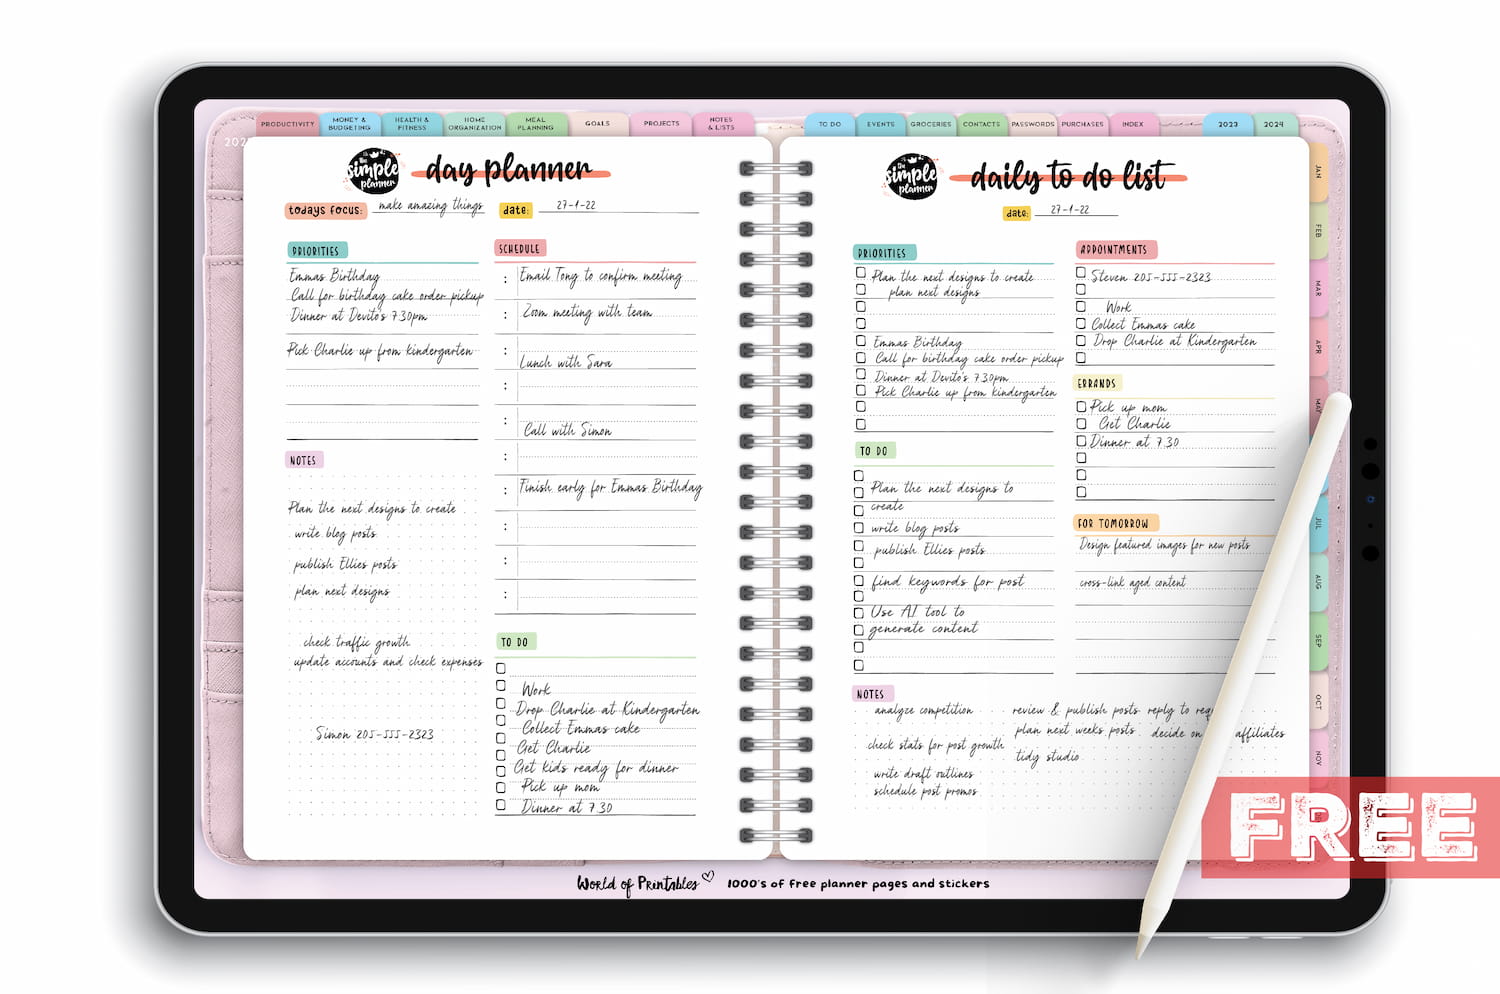 PRODUCTIVITY
MONEY &
BUDGETING
HEALTH &
FITNESS
HOME
ORGANIZATION
MEAL
PLANNING
GOALS
PROJECTS
NOTES
& LISTS
TO DO
EVENTS
GROCERIES
CONTACTS
PASSWORDS
PURCHASES
INDEX
2023
2024
202
The
simple
planner
day planner
todays focus: make amazing things
date: 27-1-22
PRIORITIES
Emmas Birthday
Call for birthday cake order pickup
Dinner at Devito's 7.30pm
Pick Charlie up from kindergarten
NOTES
Plan the next designs to create
write blog posts
publish Ellies posts
plan next designs
check traffic growth
update accounts and check expenses
Simon 205-555-2323
SCHEDULE
: Email Tony to confirm meeting
: Zoom meeting with team
:
Lunch with Sara
:
:
Call with Simon
:
: Finish early for Emmas Birthday
:
:
:
TO DO
Work
Drop Charlie at Kindergarten
Collect Emmas cake
Get Charlie
Get kids ready for dinner
Pick up mom
Dinner at 7.30
The
simple
planner
daily to do list
date: 27-1-22
PRIORITIES
Plan the next designs to create
plan next designs
Emmas Birthday
Call for birthday cake order pickup
Dinner at Devito's 7.30pm
Pick Charlie up from kindergarten
TO DO
Plan the next designs to
create
write blog posts
publish Ellies posts
find keywords for post
Use AI tool to
generate content
APPOINTMENTS
Steven 205-555-2323
Work
Collect Emmas cake
Drop Charlie at Kindergarten
ERRANDS
Pick up mom
Get Charlie
Dinner at 7.30
FOR TOMORROW
Design featured images for new posts
cross-link aged content
NOTES
analyze competition
check stats for post growth
write draft outlines
schedule post promos
review & publish posts
plan next weeks posts
tidy studio
reply to
decide on affiliates
JAN
FEB
MAR
APR
MAY
JUL
AUG
SEP
OCT
NOV
FREE
World of Printables
1000's of free planner pages and stickers